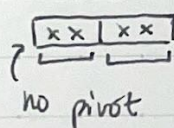 x x x x
no pivot